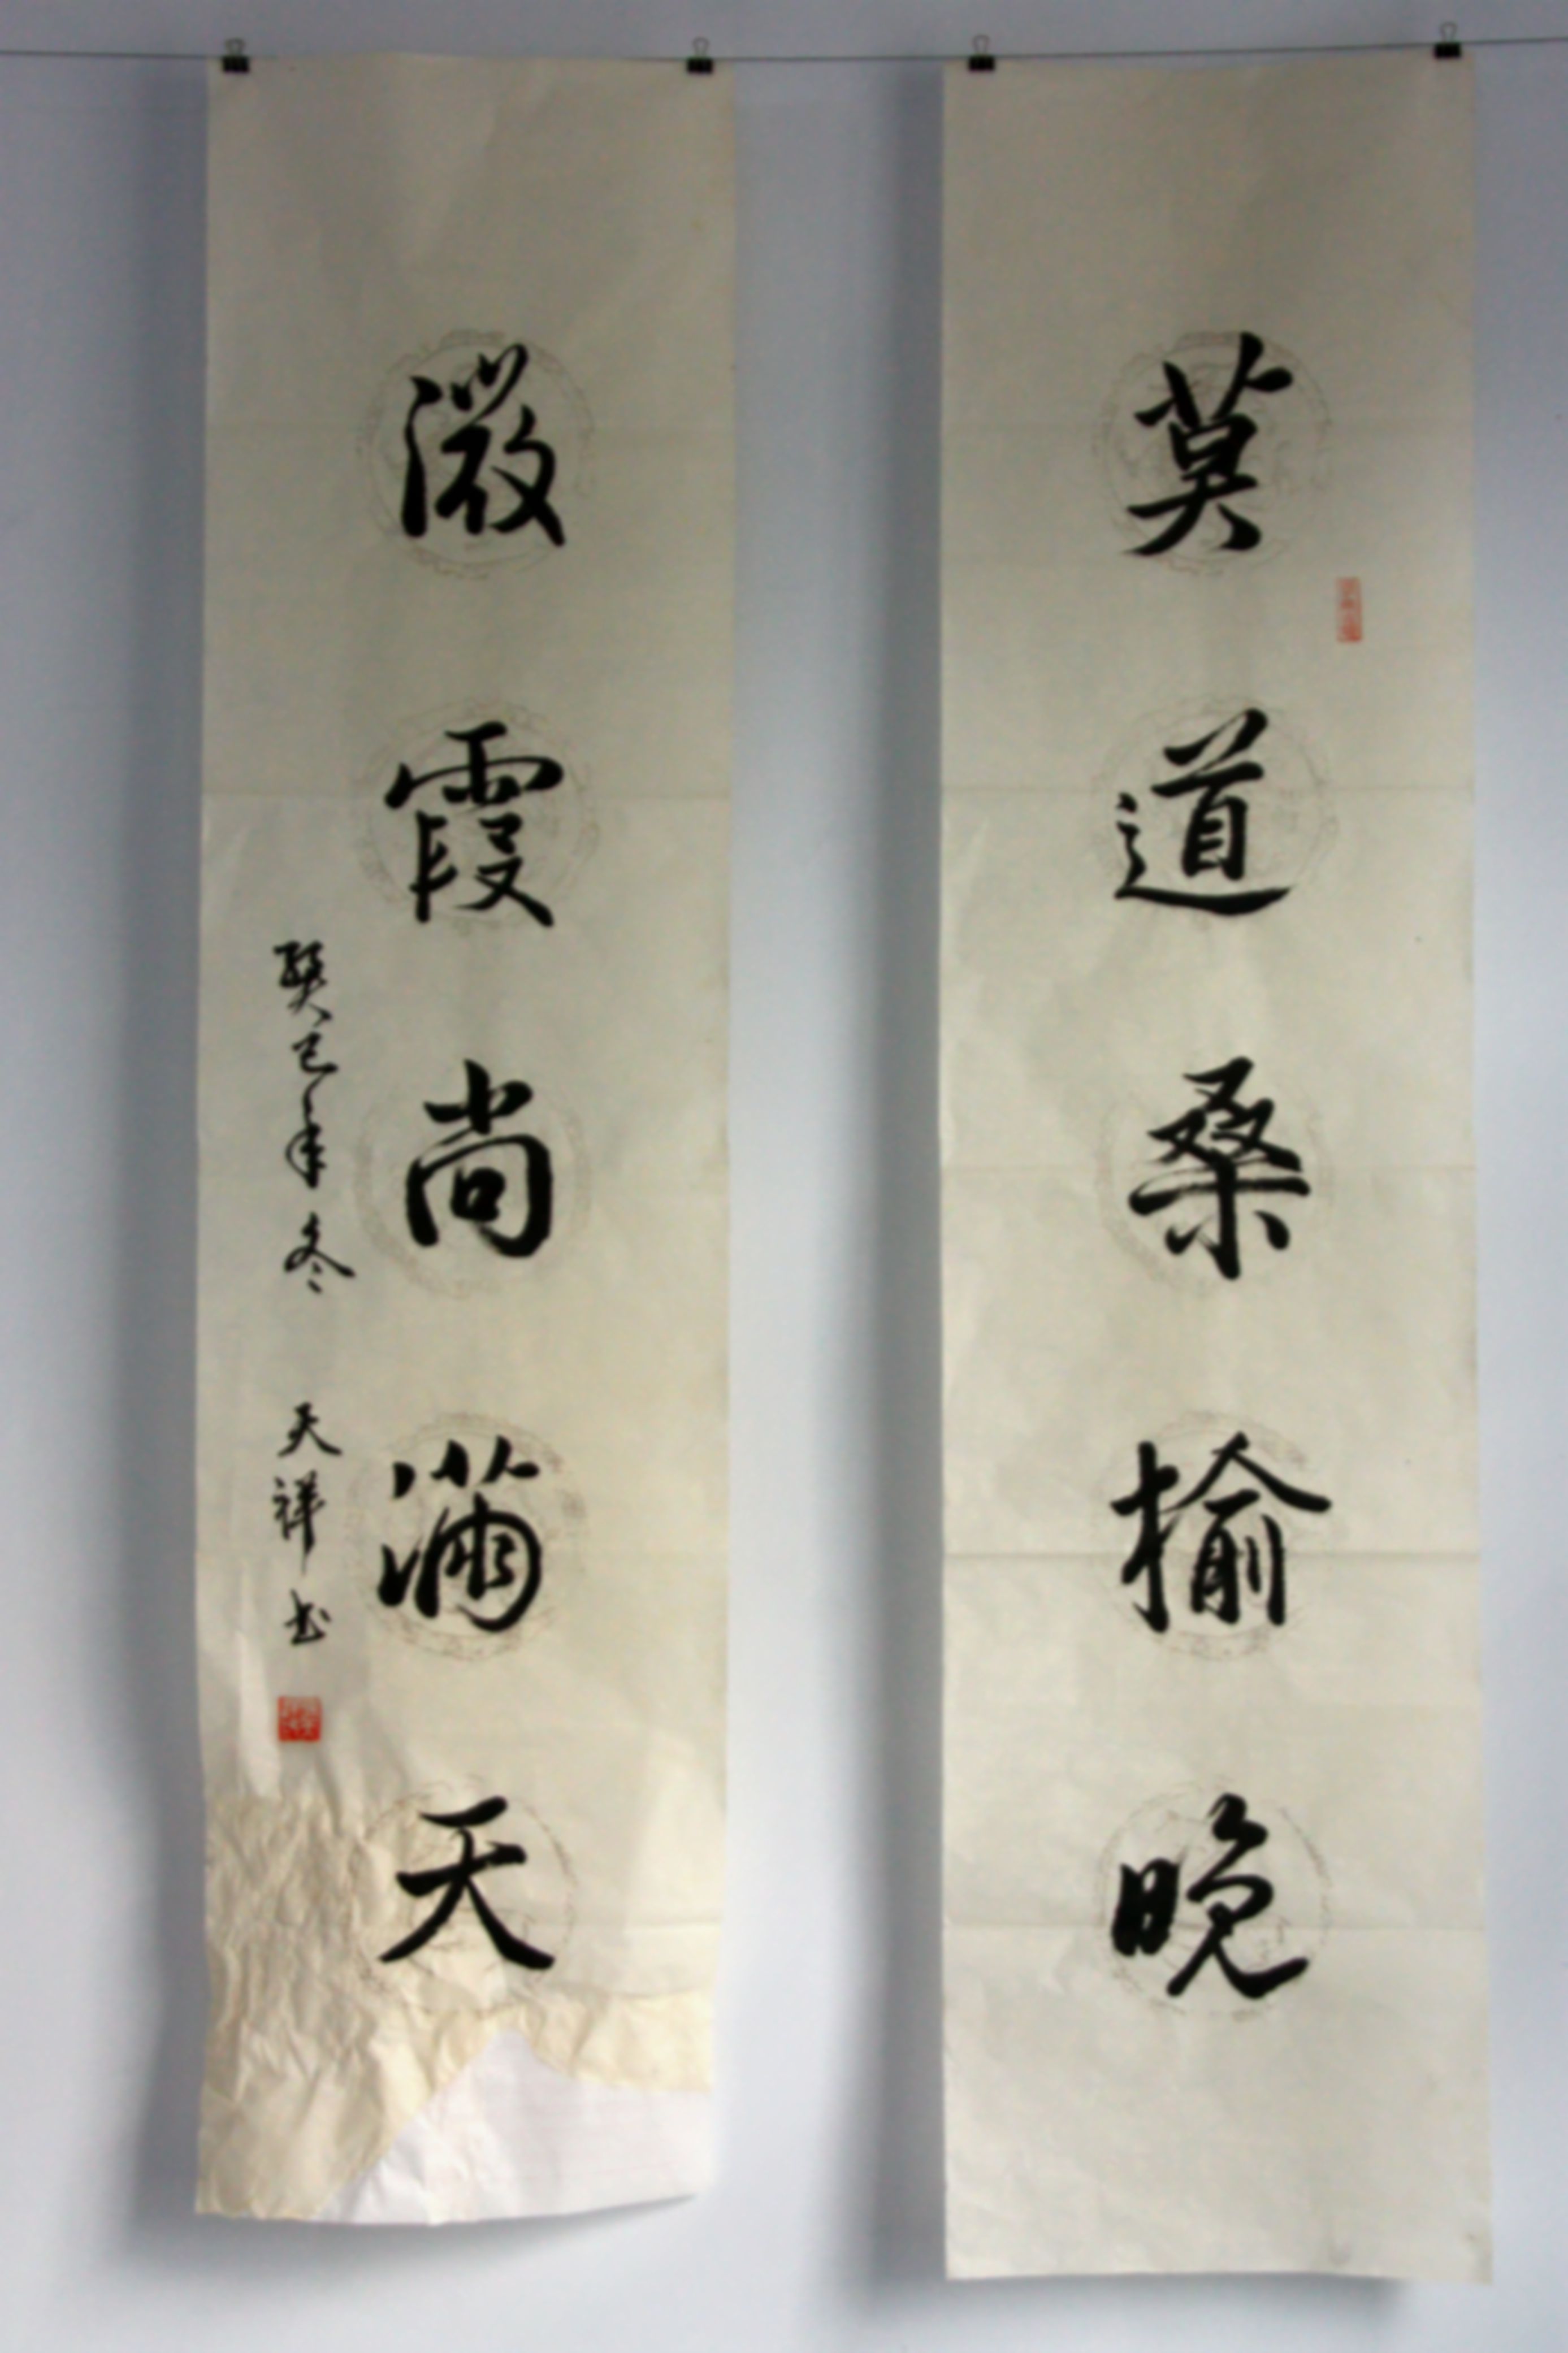 莫道桑榆晚
微霞尚滿天
癸巳年冬 天祥书